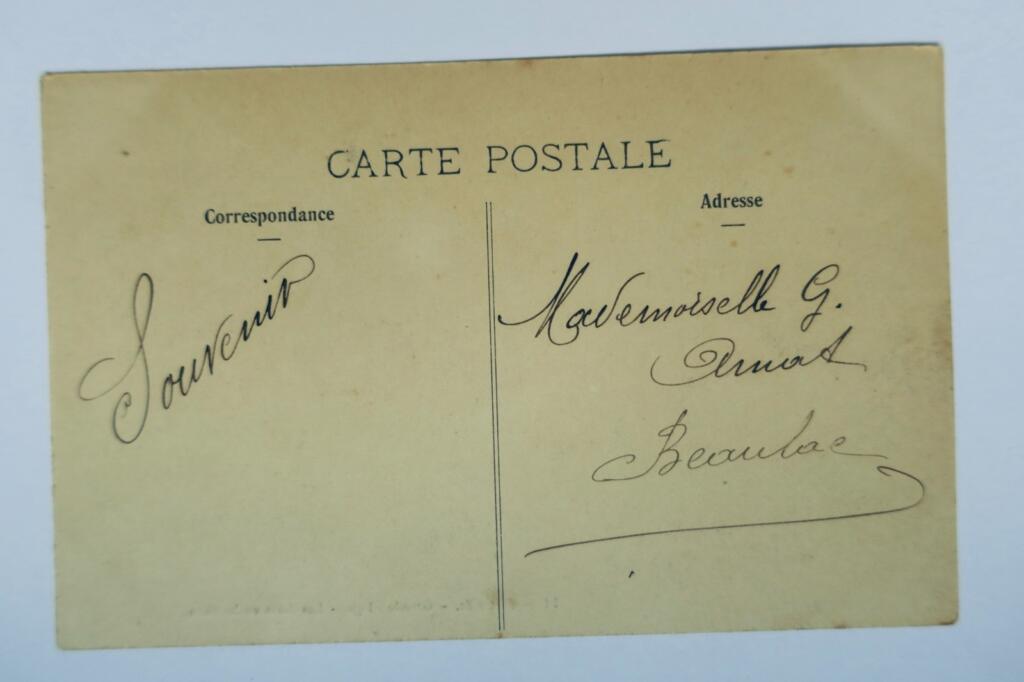 CARTE POSTALE
Correspondance
Souvenir
Adresse
Mademoiselle G.
Amat
Beaulac